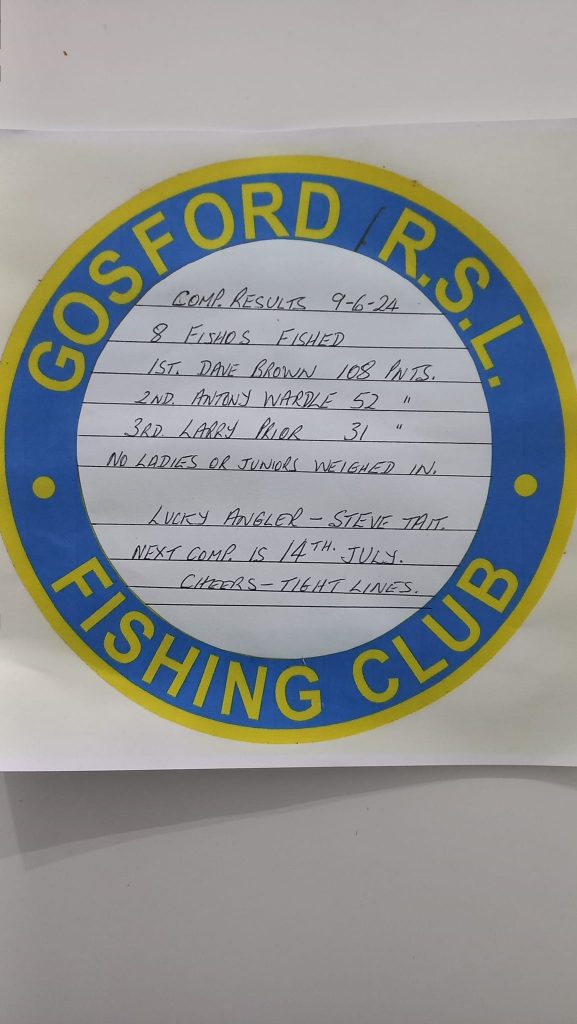 GOSFORD R.S.L.
COMP. RESULTS 9-6-24
8 FISHOS FISHED
1ST. DAVE BROWN 108 PNTS.
2ND. ANTONY WARDLE 52 "
3RD. LARRY PRIOR 31 "
NO LADIES OR JUNIORS WEIGHED IN.
LUCKY ANGLER - STEVE TAIT.
NEXT COMP. IS 14TH. JULY.
CHEERS - TIGHT LINES.
FISHING CLUB